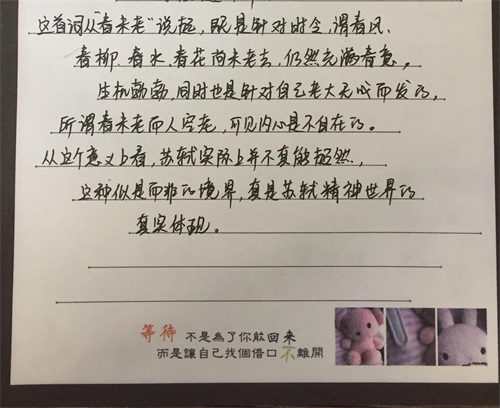 这首词从“春未老”说起，既是针对时令，谓春风、
春柳、春水、春花尚未老去，仍然充满春意，
生机勃勃，同时也是针对自己老大无成而发的，
所谓春未老而人空老，可见内心是不自在的。
从这个意义上看，苏轼实际上并不真能超然，
这种似是而非的境界，真是苏轼精神世界的
真实体现。
等待 不是為了你能回來
而是讓自己找個借口不離開